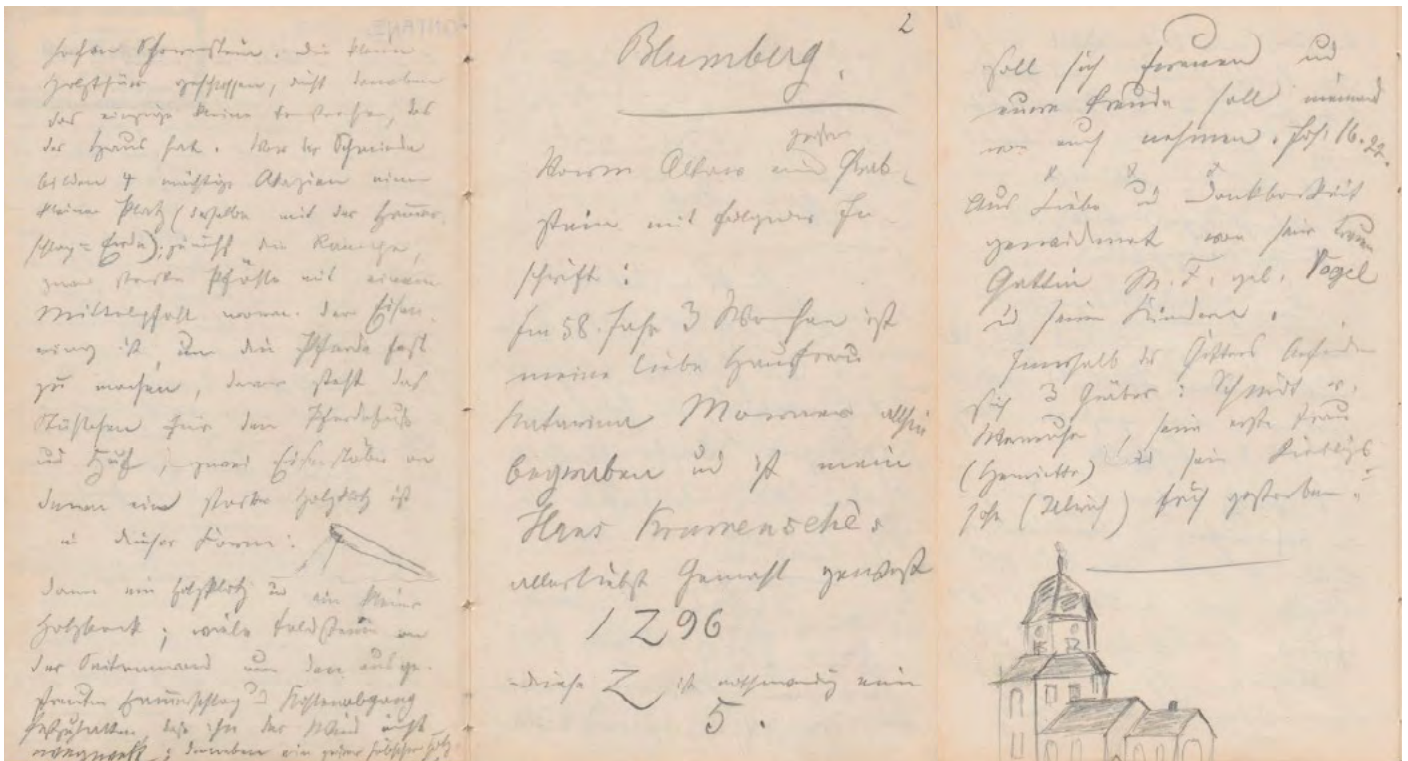 hohen Schornstein. Die kleine
Holzthür geschlossen, dicht daneben
das einzige kleine Fensterchen, das
das Haus hat. Vor der Schmiede
bilden 4 mächtige Akazien einen
kleinen Platz (derselbe mit der Hammer-
schlag-Erde); zunächst die Rampe,
zwei starke Pfähle mit einem
Mittelpfahl woran der Eisen-
ring ist, um die Pferde fest
zu machen, davor steht das
Stühlchen für den Pferdefuß
und Huf, zwei Eisenstäbe an
denen ein starker Holzklotz ist
in dieser Form:
Dann ein Holzklotz und eine kleine
Holzbank; viele Feldsteine an
der Seitenwand um den ausge-
streuten Hammerschlag und Kohlenabgang
festzuhalten, daß ihn der Wind nicht
wegweht; daneben ein
2
Blumberg.
Vorm Altar ein großer Grab-
stein mit folgender In-
schrift:
Im 58. Jahr 3 Wochen ist
meine liebe Hausfrau
Katarina alhie
begraben ud ist mein
Hans Krumensehe's
allerliebst Gemahl gewest
1Z96
diese Z ist nothwendig eine
5.
soll sich freuen ud
eure Freude soll niemand
von euch nehmen. Joh. 16. 22.
Aus Liebe ud Dankbarkeit
gewidmet von seiner treuen
Gattin M. F. geb. Vogel
ud seinen Kindern.
Innerhalb des Gitters befinden
sich 3 Gräber: Schmidt v.
Werneuchen, seine erste Frau
(Henriette) und sein Lieblings-
sohn (Ulrich) früh gestorben.